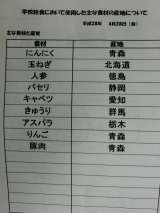 学校給食において使用した主な食材の産地について
平成28年 4月28日（木）
主な食材と産地
食材 産地
にんにく 青森
玉ねぎ 北海道
人参 徳島
パセリ 静岡
キャベツ 愛知
きゅうり 群馬
アスパラ 栃木
りんご 青森
豚肉 青森